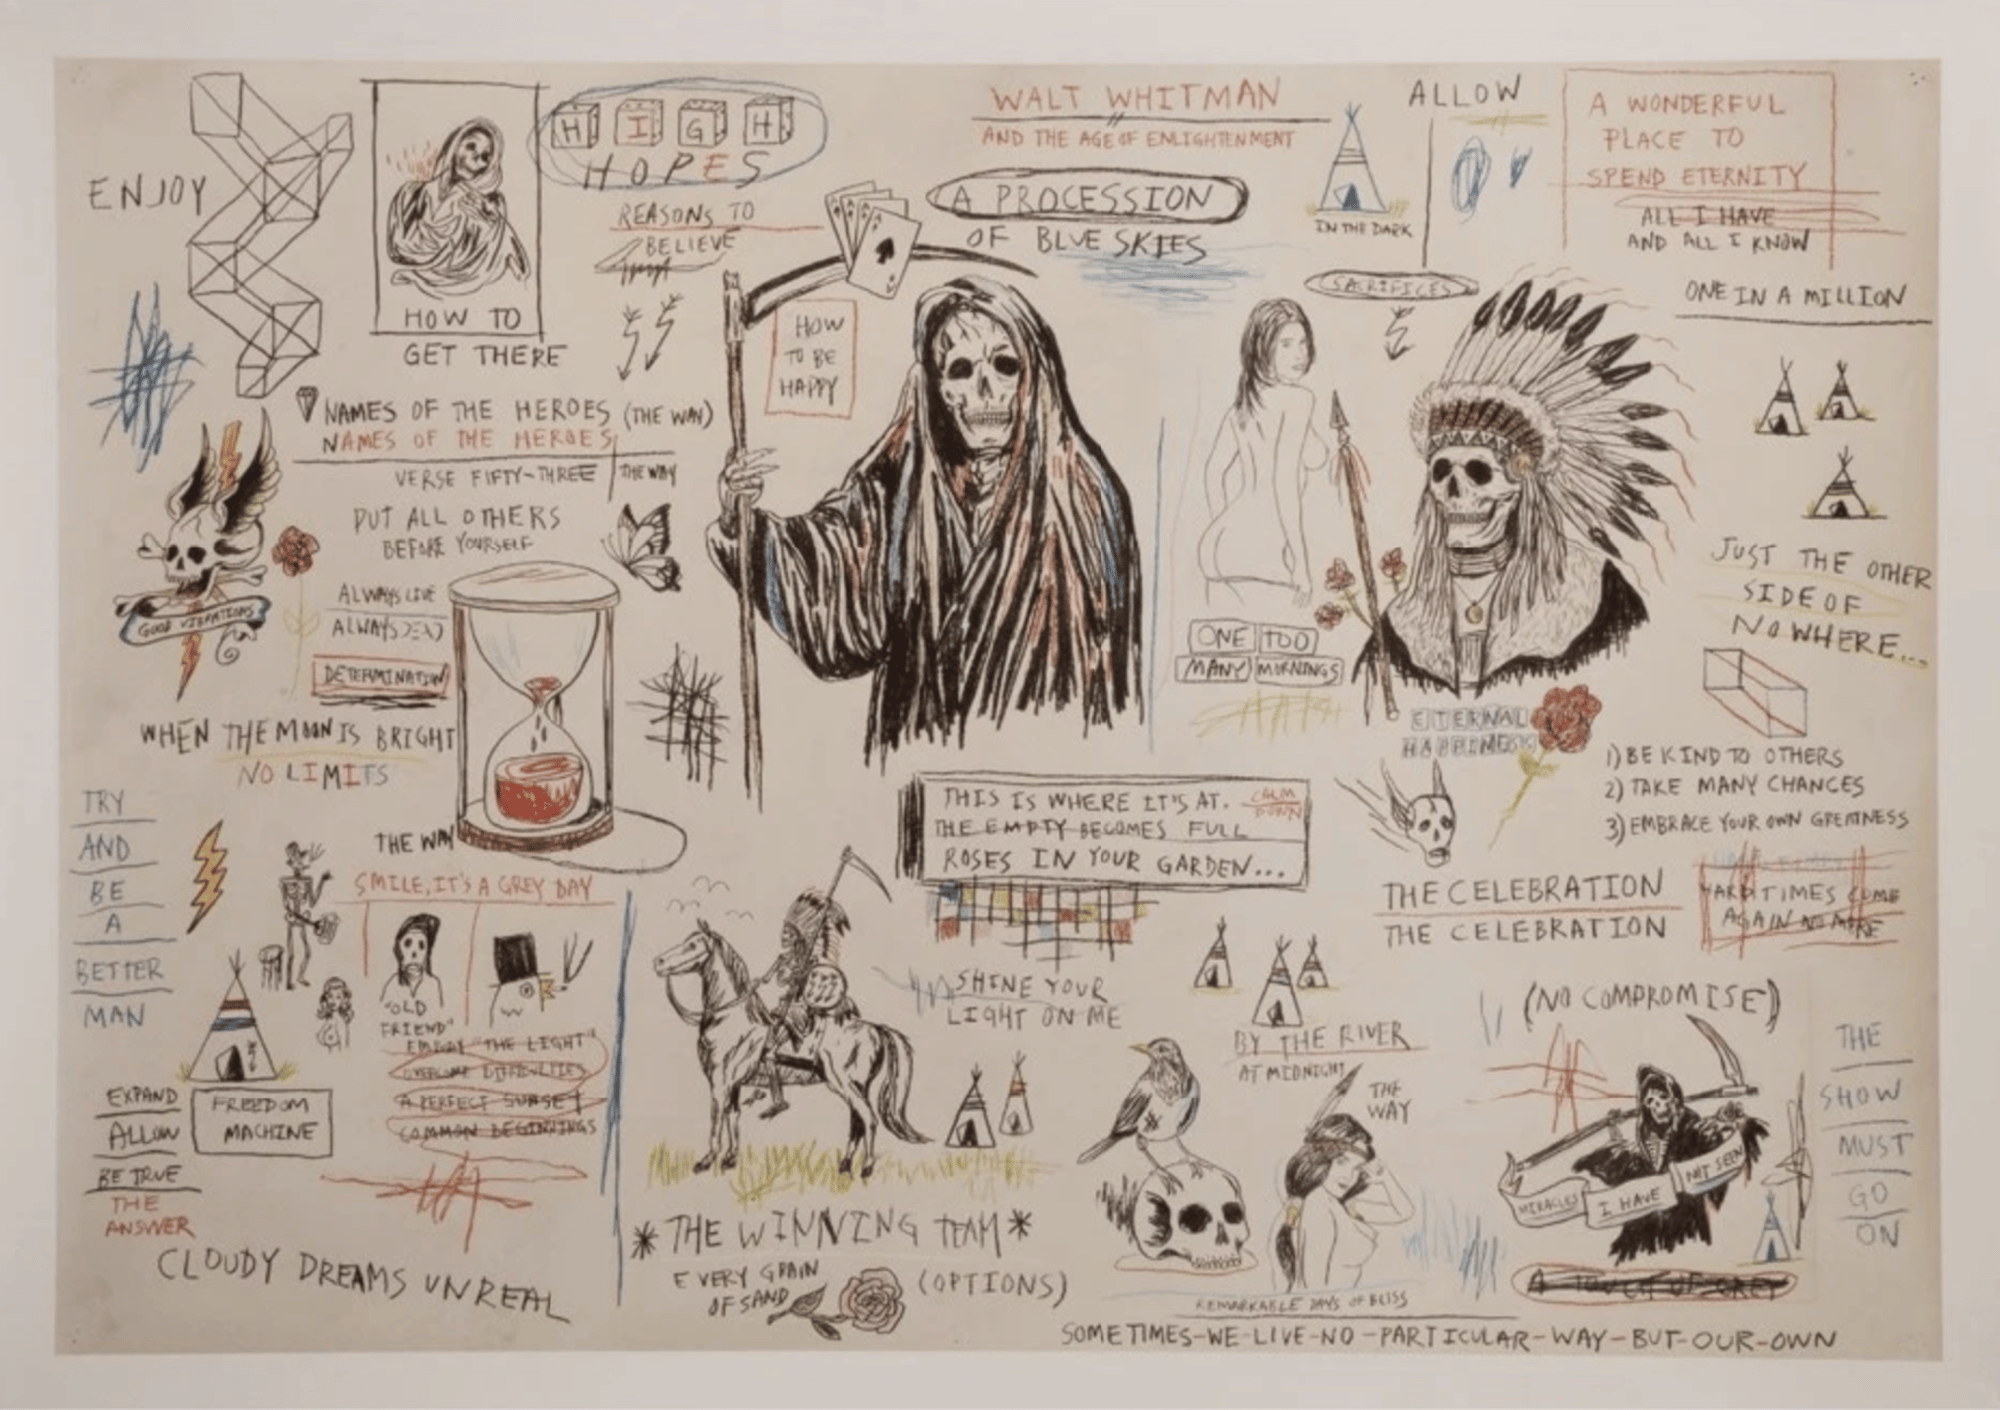 ENJOY
HOW TO
GET THERE
HIGH
HOPES
REASONS TO
BELIEVE
WALT WHITMAN
AND THE AGE OF ENLIGHTENMENT
A PROCESSION
OF BLUE SKIES
IN THE DARK
ALLOW
A WONDERFUL
PLACE TO
SPEND ETERNITY
ALL I HAVE
AND ALL I KNOW
ONE IN A MILLION
SACRIFICES
HOW
TO BE
HAPPY
NAMES OF THE HEROES (THE WAY)
NAMES OF THE HEROES
VERSE FIFTY-THREE
THE WAY
PUT ALL OTHERS
BEFORE YOURSELF
GOOD VIBRATIONS
ALWAYS LIVE
ALWAYS DEAD
DETERMINATION
WHEN THE MOON IS BRIGHT
NO LIMITS
THE WAY
ONE TOO
MANY MORNINGS
JUST THE OTHER
SIDE OF
NOWHERE...
ETERNAL
HAPPINESS
1) BE KIND TO OTHERS
2) TAKE MANY CHANCES
3) EMBRACE YOUR OWN GREATNESS
THIS IS WHERE IT'S AT.
CALM
DOWN
THE EMPTY BECOMES FULL
ROSES IN YOUR GARDEN...
THE CELEBRATION
THE CELEBRATION
HARD TIMES COME
AGAIN NO MORE
TRY
AND
BE
A
BETTER
MAN
SMILE, IT'S A GREY DAY
"OLD
FRIEND"
EMBODY "THE LIGHT"
OVERCOME DIFFICULTIES
A PERFECT SUNSET
COMMON BEGINNINGS
EXPAND
ALLOW
BE TRUE
THE
ANSWER
FREEDOM
MACHINE
CLOUDY DREAMS UNREAL
SHINE YOUR
LIGHT ON ME
*THE WINNING TEAM*
EVERY GRAIN
OF SAND
(OPTIONS)
BY THE RIVER
AT MIDNIGHT
THE
WAY
REMARKABLE DAYS OF BLISS
(NO COMPROMISE)
MIRACLES
I HAVE
NOT SEEN
A TOUCH OF GREY
THE
SHOW
MUST
GO
ON
SOMETIMES-WE-LIVE-NO-PARTICULAR-WAY-BUT-OUR-OWN